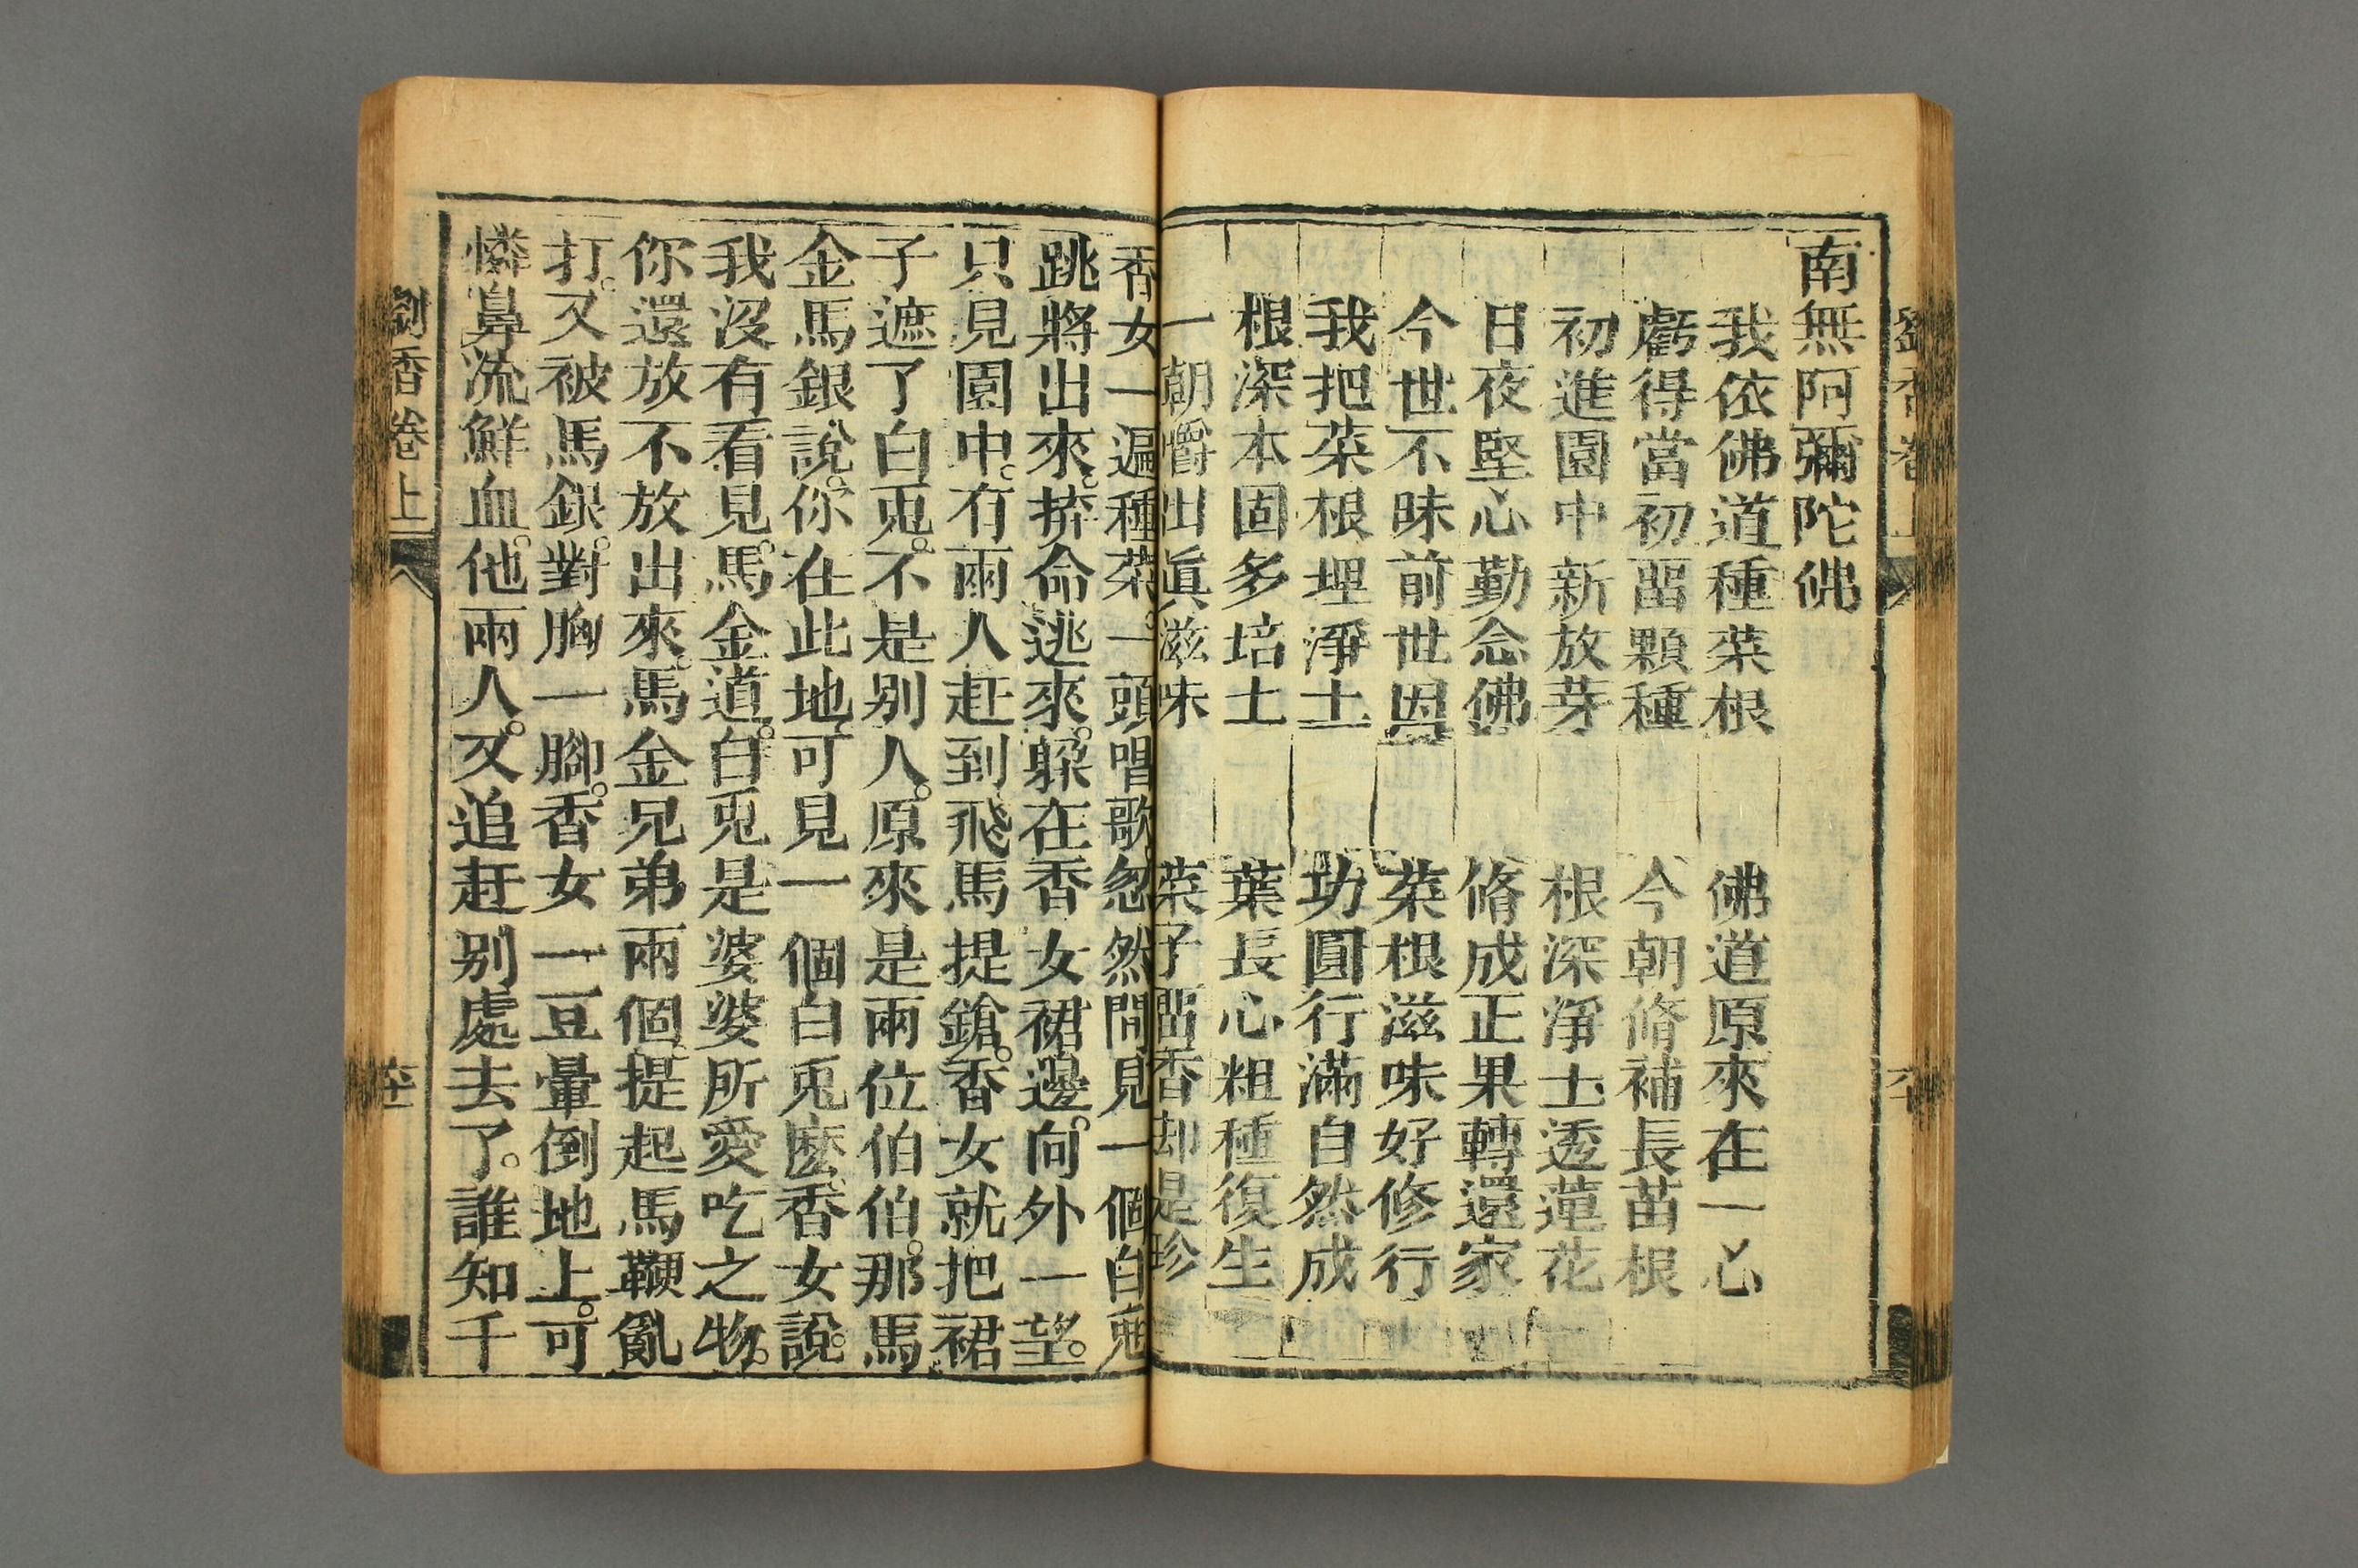 南無阿彌陀佛
我依佛道種菜根 佛道原來在一心
虧得當初畱顆種 今朝脩補長苗根
初進園中新放芽 根深淨土透蓮花
日夜堅心勤念佛 脩成正果轉還家
今世不昧前世恩 菜根滋味好修行
我把菜根埋淨土 功圓行滿自然成
根深本固多培土 葉長心粗種復生
一朝嚼出眞滋味 菜子畱香却是珍
香女一遍種菜。一頭唱歌忽然間見一個白兎
跳將出來。擠命逃來。躱在香女裙邊。向外一望。
只見園中。有兩人赶到飛馬提鎗。香女就把裙
子遮了白兎。不是别人。原來是兩位伯伯。那馬
金馬銀說。你在此地。可見一個白兎麽。香女說。
我沒有看見。馬金道。白兎是婆婆所愛吃之物。
你還放不放出來。馬金兄弟兩個。提起馬鞭亂
打。又被馬銀。對胸一腳。香女一亘暈倒地上。可
憐鼻流鮮血。他兩人。又追赶别處去了。誰知千
劉香卷上